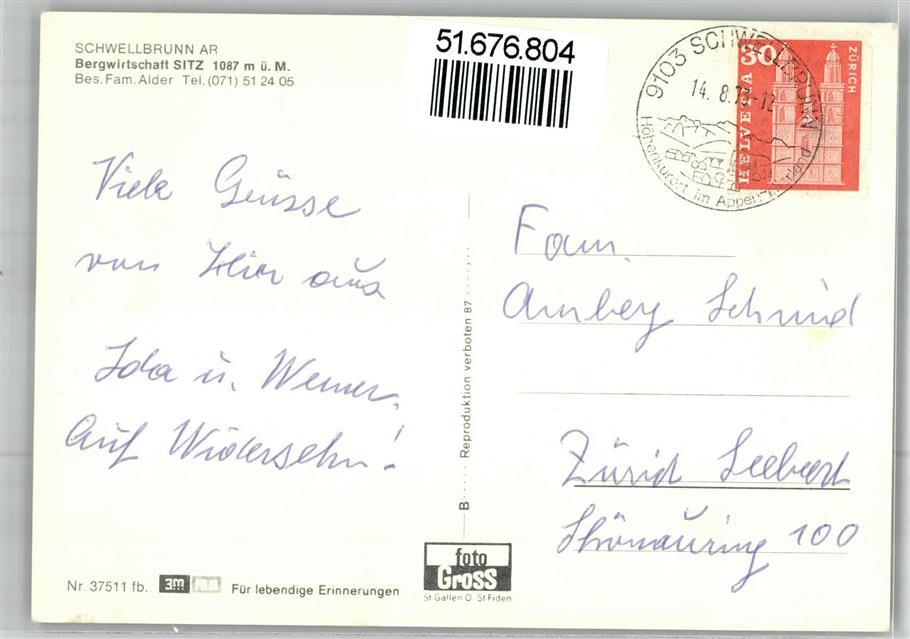 SCHWELLBRUNN AR
Bergwirtschaft SITZ 1087 m ü. M.
Bes. Fam. Alder Tel. (071) 51 24 05
51.676.804
9103 SCHWELLBRUNN
14. 8. -12
Höhenkurort im
30
HELVETIA
ZÜRICH
Viele Grüsse
von Hier aus
Ida u. Werner.
Auf Widersehn!
B
Reproduktion verboten 87
Fam.
Schmid
Zürich Seebach
Schönauring 100
Nr. 37511 fb.
3M FILM
Für lebendige Erinnerungen
foto
Gross
St. Gallen O St. Fiden